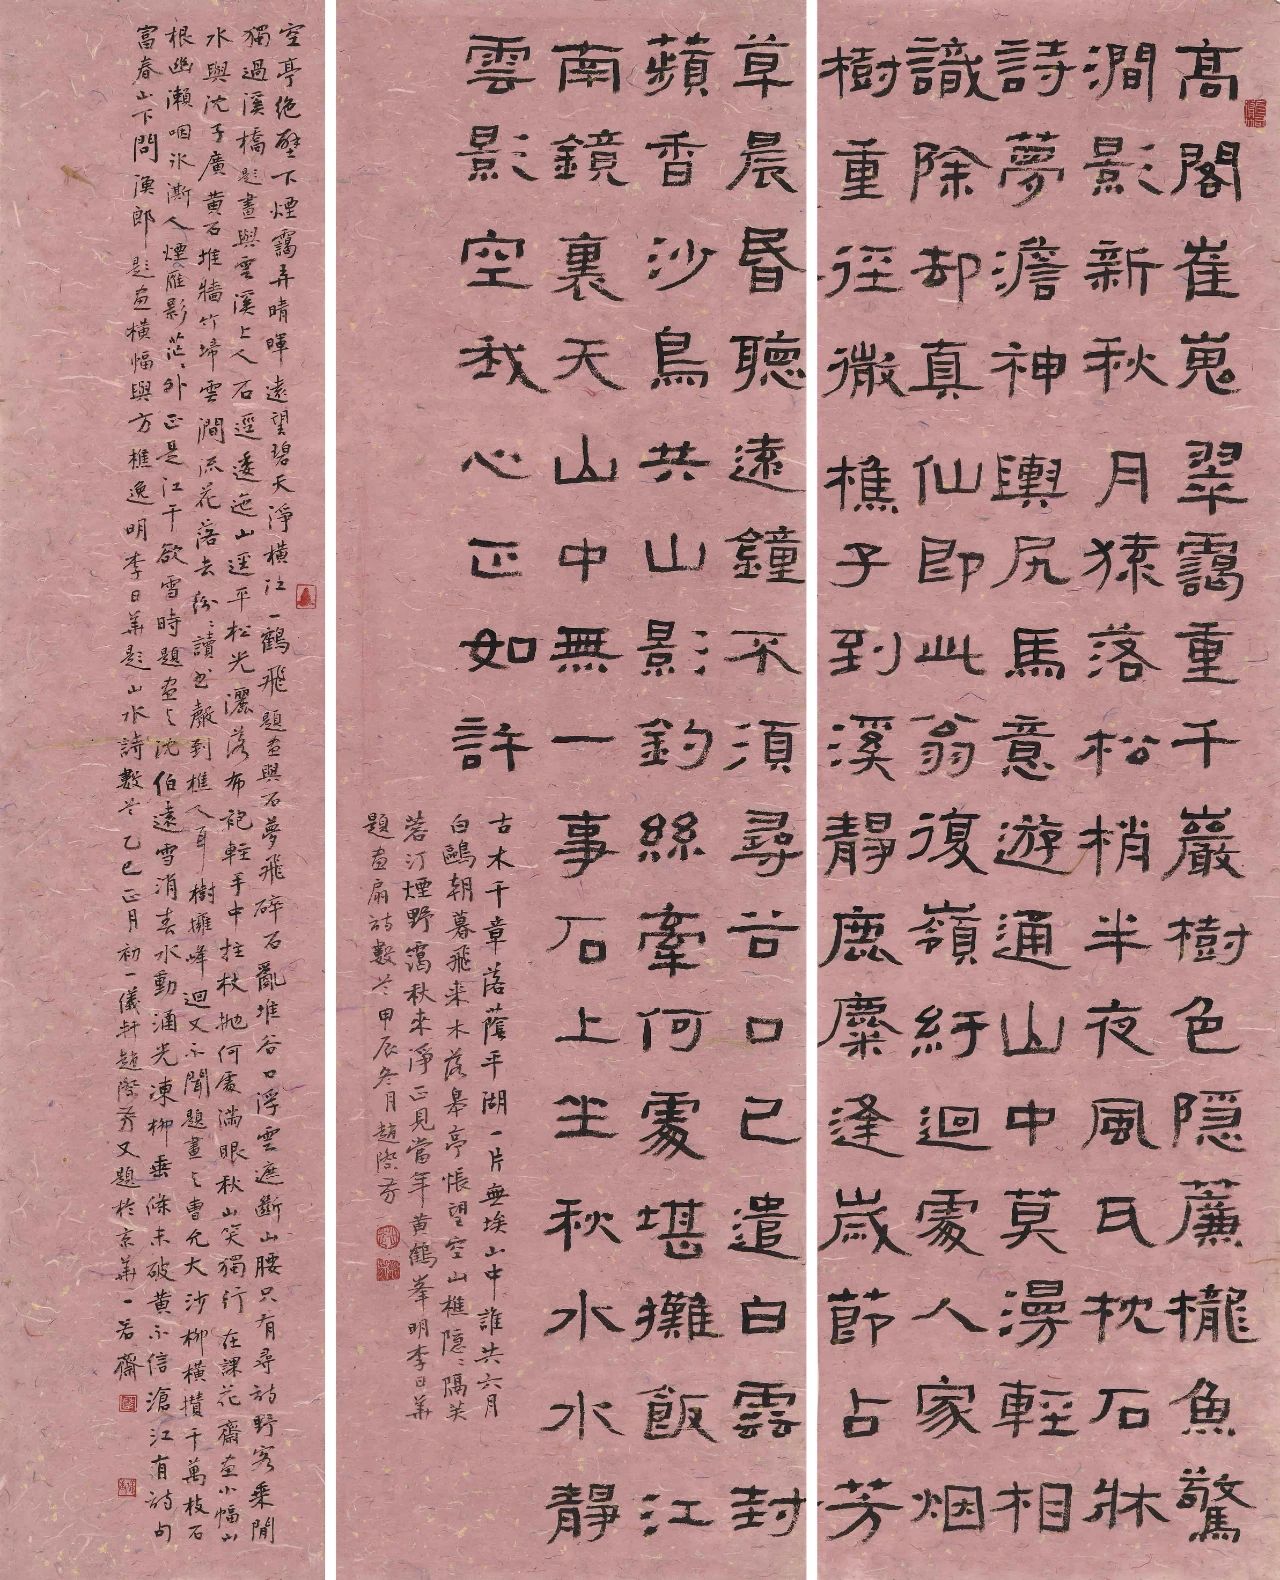 高閣崔嵬翠靄重千巖樹色隱簾櫳魚驚
澗影新秋月猿落松梢半夜風氏枕石牀
詩夢澹神輿尻馬意遊通山中莫漫輕相
識除却真仙即此翁復嶺紆迴處人家烟
樹重徑微樵子到溪靜鹿麋逢歲節占芳
草晨昏聽遠鐘不須尋谷口已遣白雲封
蘋香沙鳥共山影釣絲牽何處堪攤飯江
南鏡裏天山中無一事石上坐秋水水靜
雲影空我心正如許
古木千章落蔭平湖一片無埃山中誰共六月
白鷗朝暮飛來木落皋亭悵望空山樵隱隱隔笑
蒼汀煙野靄秋來淨正見當年黃鶴峯明李日華
題画扇詩數首甲辰冬月趙際芳
空亭絶壁下煙靄弄晴暉遠望碧天淨橫江一鶴飛題画與石夢飛碎石亂堆谷口浮雲遮斷山腰只有尋詩野客乘閒
獨過溪橋題畫與雲溪上人石逕逶迤山逕平松光灑落布袍輕手中拄杖拋何處滿眼秋山笑獨行在課花齋画小幅山
水與沈子廣黄石堆牆竹埽雲澗流花落去紛紛讀書聲到樵人耳樹擁峰迴又不聞題畫與曹允大沙柳橫攢千萬枝石
根幽瀨咽冰澌人煙雁影茫茫外正是江干欲雪時題画與沈伯遠雪消春水動涵光凍柳垂條未破黃不信滄江有詩句
富春山下問漁郎題画橫幅與方樵逸明李日華題山水詩數首乙巳正月初一儀軒趙際芳又題於京華一若齋